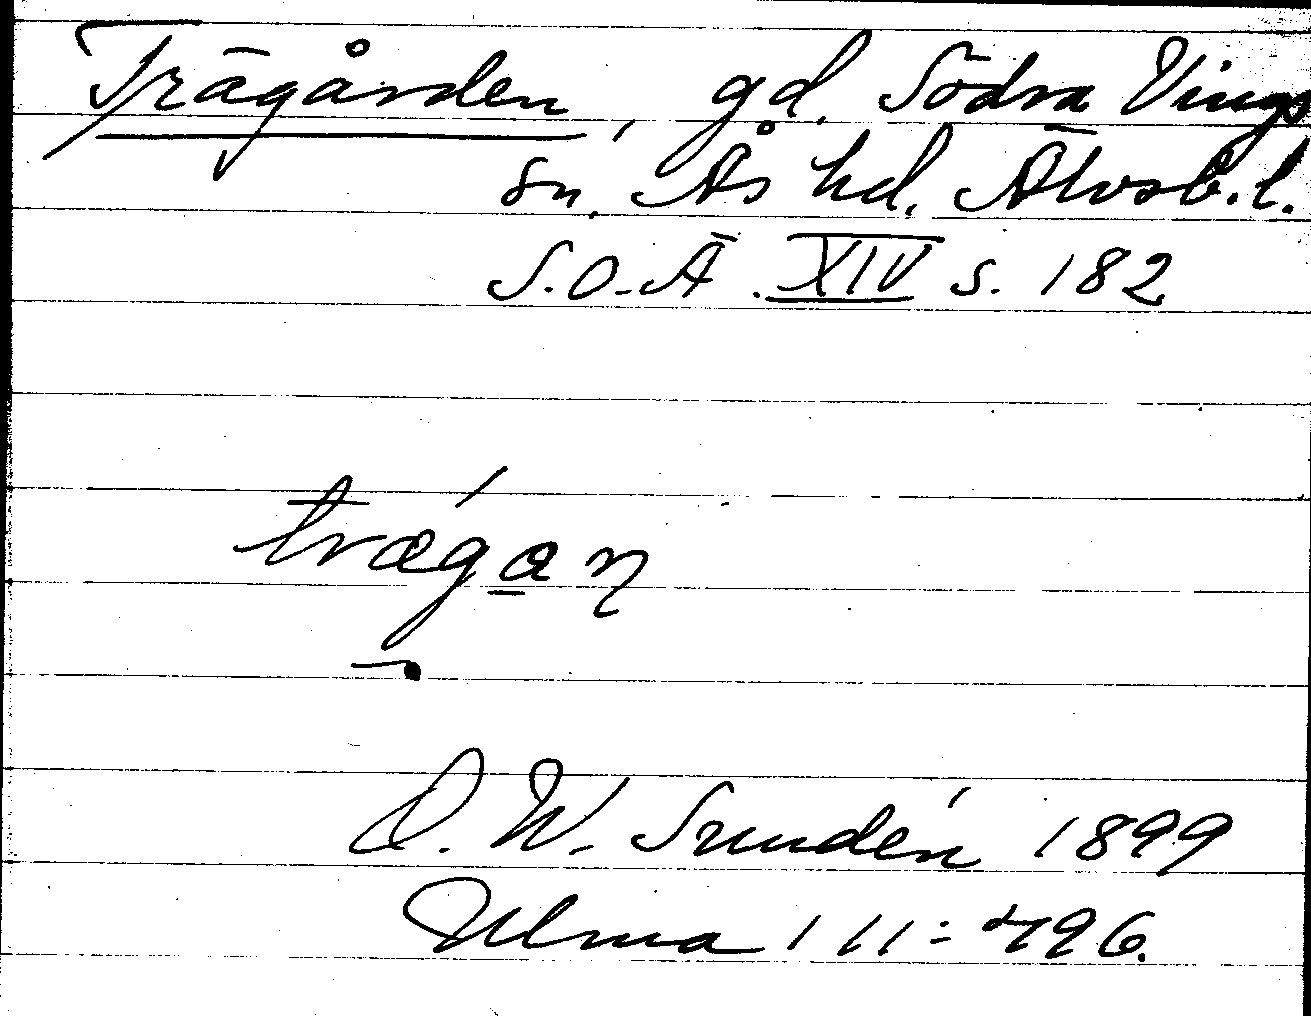 Trägården, gd, Södra Vings
sn, Ås hd, Älvsb. l.
S.O.Ä. XIV s. 182
trægan
D. W. Sundén 1899
Ulma 111:496.